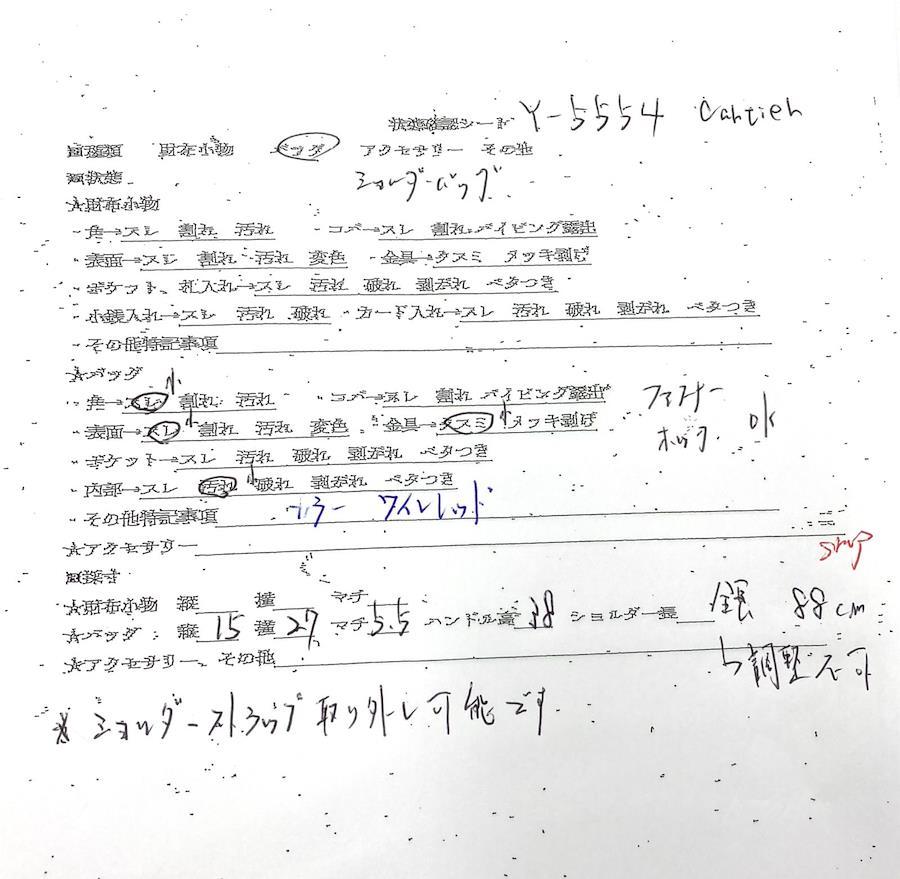 状態確認シート Y-5554 Cartier
■種類 財布小物 バッグ アクセサリー その他
■状態 ショルダーバッグ
★財布小物
・角→スレ 割れ 汚れ ・コバ→スレ 割れ パイピング露出
・表面→スレ 割れ 汚れ 変色 ・金具→クスミ メッキ剥げ
・ポケット、札入れ→スレ 汚れ 破れ 剥がれ ベタつき
・小銭入れ→スレ 汚れ 破れ ・カード入れ→スレ 汚れ 破れ 剥がれ ベタつき
・その他特記事項
★バッグ
・角→スレ小 割れ 汚れ ・コバ→スレ 割れ パイピング露出 ファスナー
・表面→スレ小 割れ 汚れ 変色 ・金具→クスミ小 メッキ剥げ ホック OK
・ポケット→スレ 汚れ 破れ 剥がれ ベタつき
・内部→スレ 汚れ小 破れ 剥がれ ベタつき
・その他特記事項 カラー ワインレッド
★アクセサリー
■採寸
★財布小物 縦 横 マチ
★バッグ:縦 15 横 27 マチ 5.5 ハンドル高 38 ショルダー長 全長 88cm
★アクセサリー、その他 ↳調整不可
※ショルダーストラップ取り外し可能です